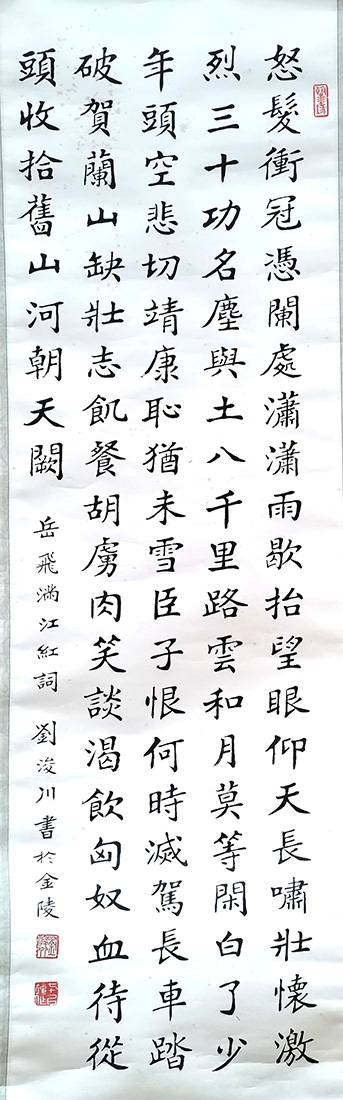 怒髮衝冠憑闌處瀟瀟雨歇抬望眼仰天長嘯壯懷激
烈三十功名塵與土八千里路雲和月莫等閑白了少
年頭空悲切靖康恥猶未雪臣子恨何時滅駕長車踏
破賀蘭山缺壯志飢餐胡虜肉笑談渴飲匈奴血待從
頭收拾舊山河朝天闕
岳飛滿江紅詞 劉浚川書於金陵